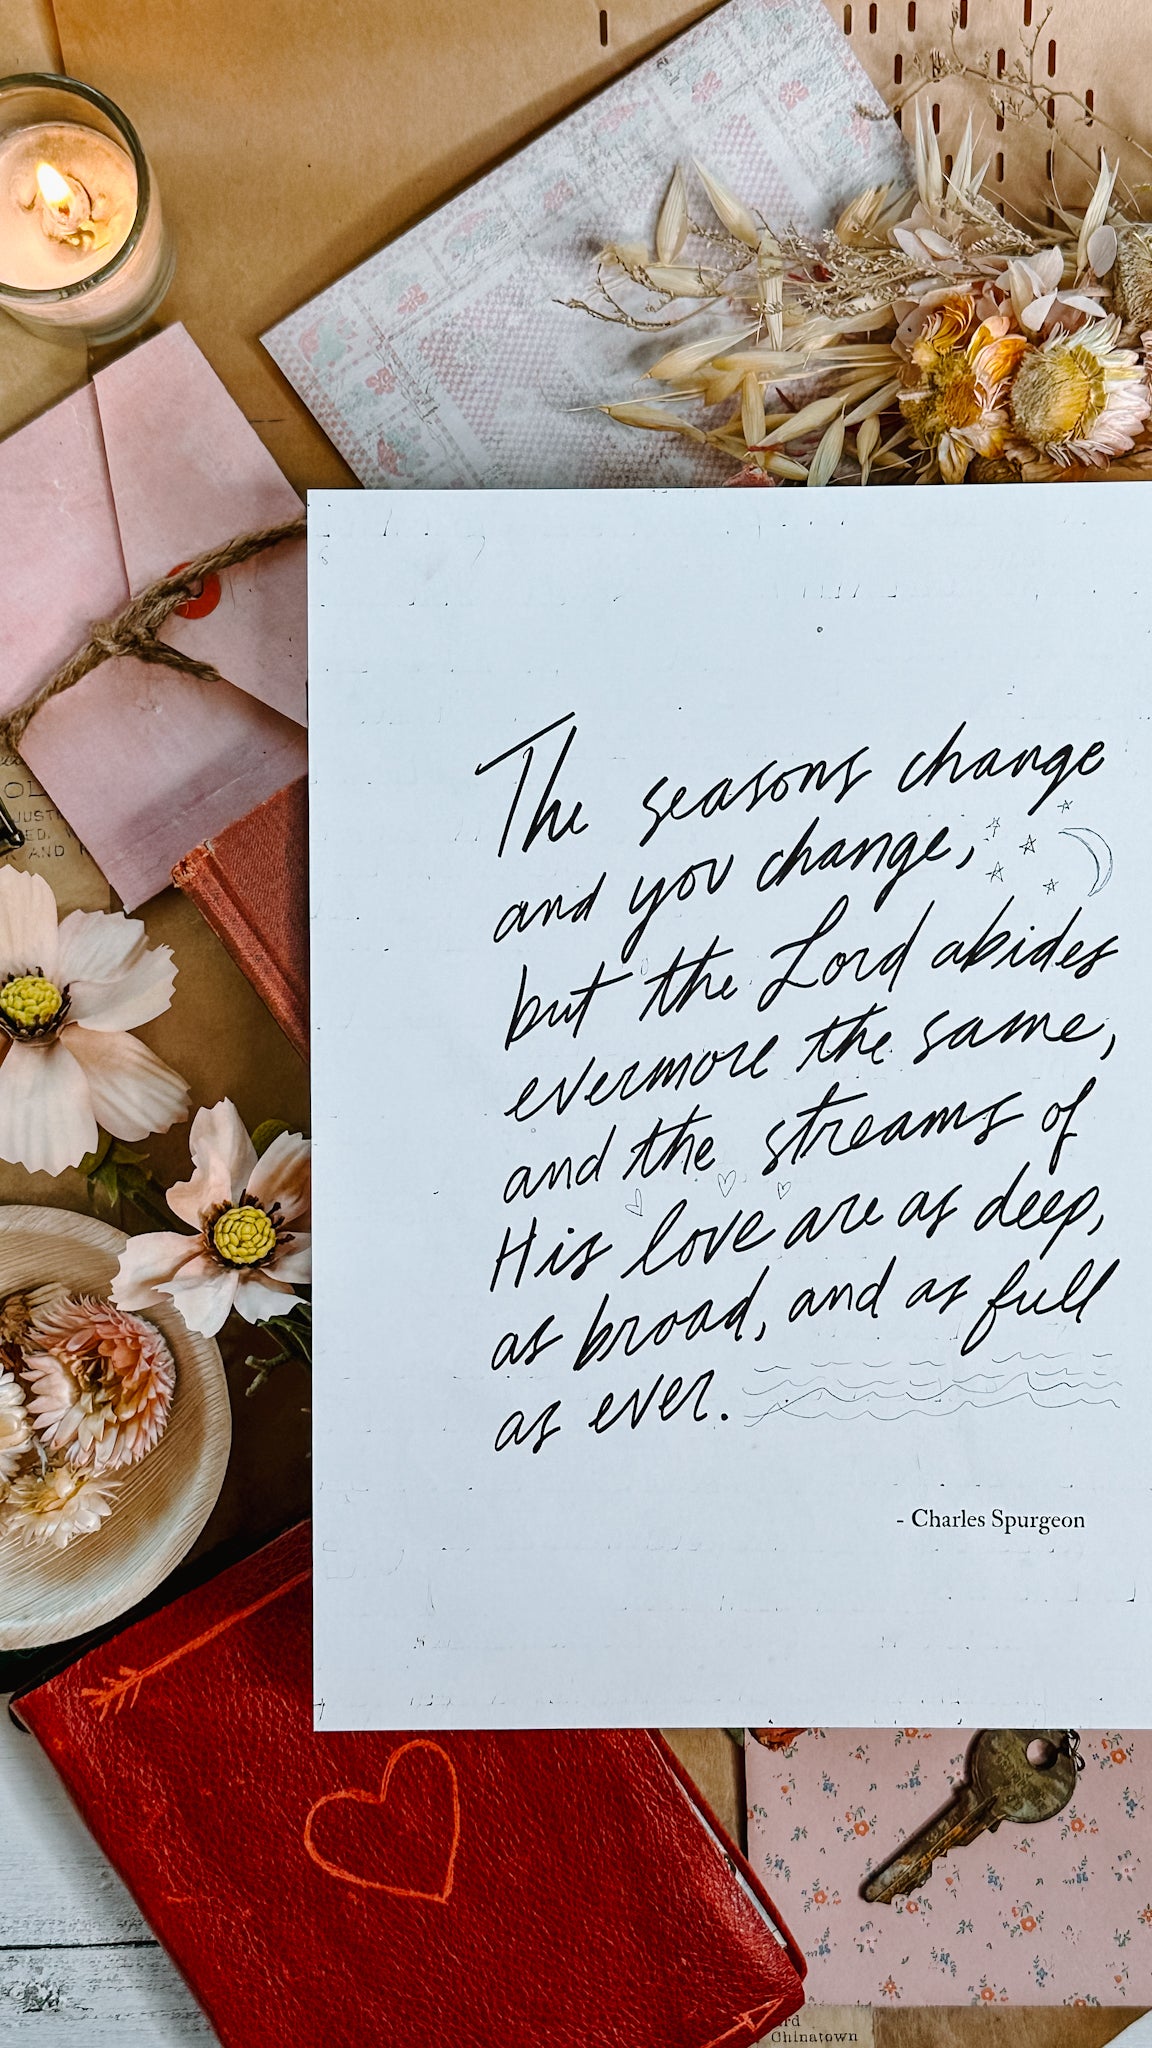 The seasons change
and you change,
but the Lord abides
evermore the same,
and the streams of
His love are as deep,
as broad, and as full
as ever.
- Charles Spurgeon
OL
JUST
ED.
AND
rd
Chinatown